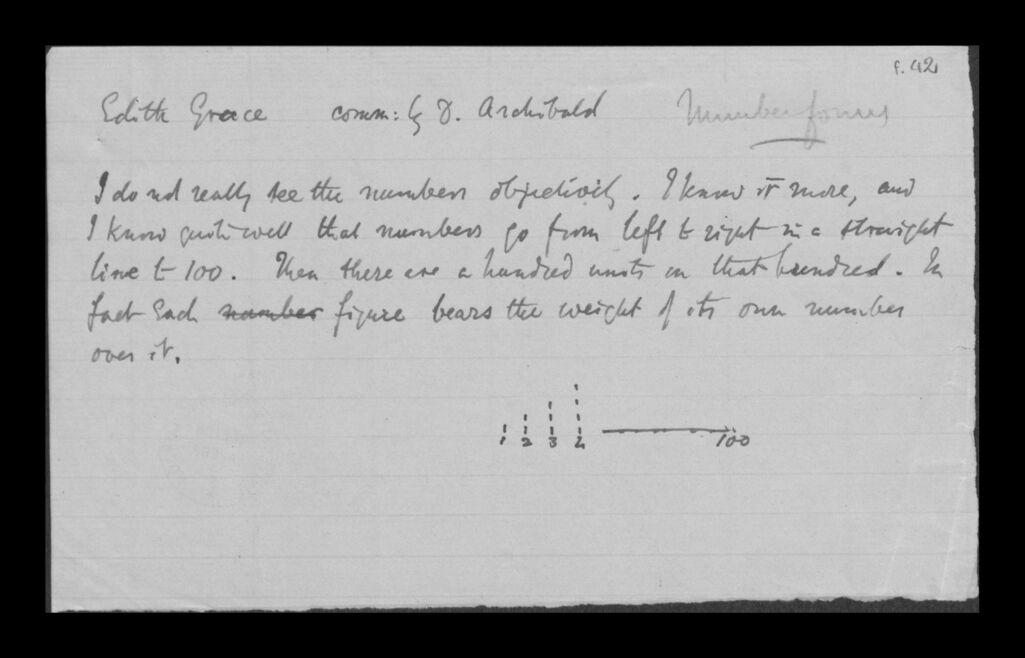 f. 42
Edith Grace comm: by D. Archibald Number forms
I do not really see the numbers objectively. I know it more, and
I know quite well that numbers go from left to right in a straight
line to 100. Then there are a hundred units on that hundred. In
fact each number figure bears the weight of its own number
over it.
1 2 3 4 100